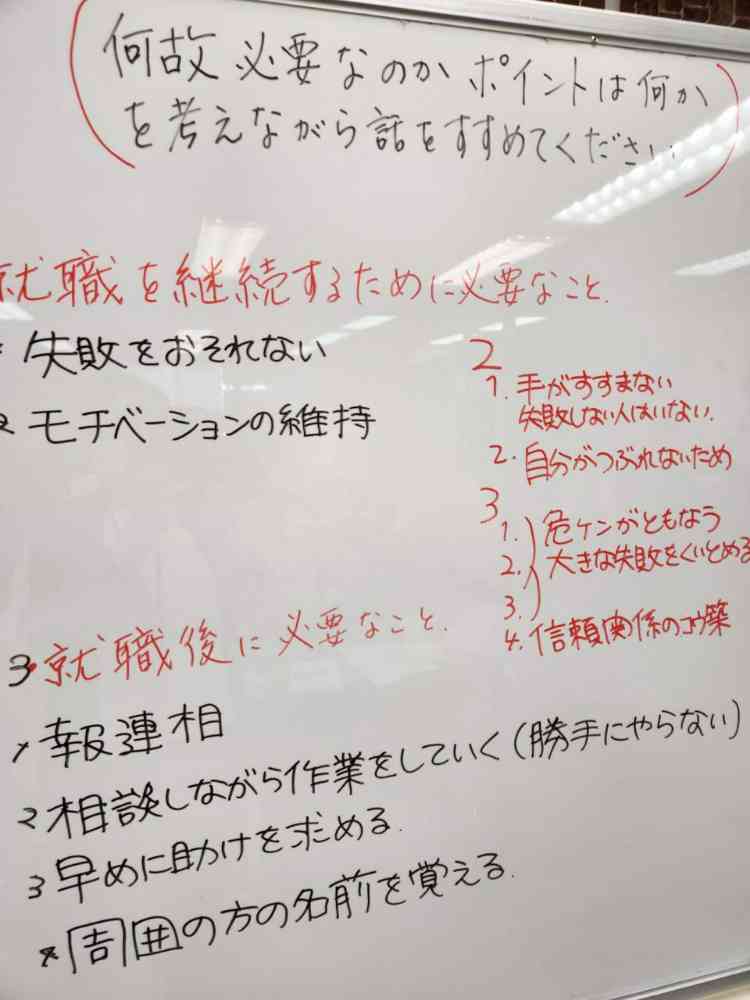 何故必要なのか ポイントは何か
を考えながら話をすすめてください
就職を継続するために必要なこと.
失敗をおそれない
2 モチベーションの維持
2
1. 手がすすまない
失敗しない人はいない.
2. 自分がつぶれないため
3
1. 危ケンがともなう
2. 大きな失敗をくいとめる
3.
4. 信頼関係のコウ築
3 就職後に必要なこと.
1 報連相
2 相談しながら作業をしていく(勝手にやらない)
3 早めに助けを求める.
周囲の方の名前を覚える.